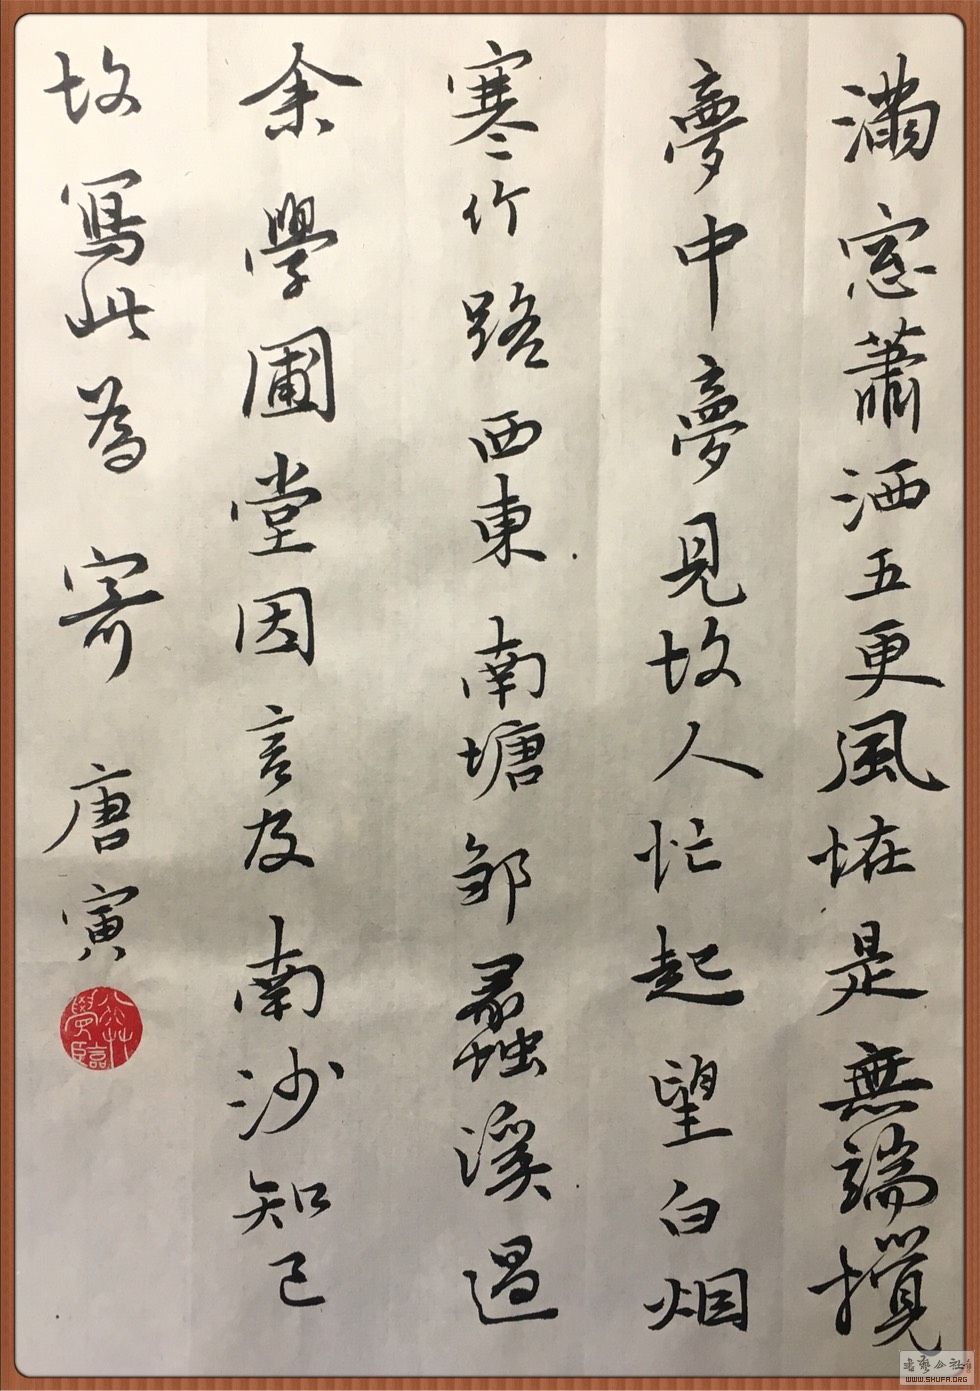 滿窓蕭洒五更風恠是無端攪
夢中夢見故人忙起望白烟
寒竹路西東南塘邹蠡溪過
余學圃堂因言及南沙知己
故寫此為寄唐寅
WWW.SHUFA.ORG